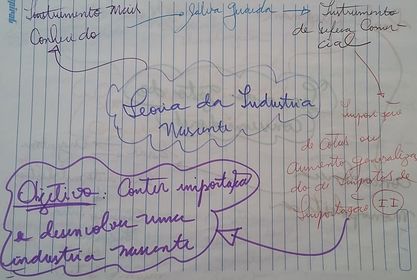 Instrumento mais → Salva Guarda → Instrumento
Conhecido
de defesa Comer-
cial
Teoria da Industria
Nascente
Imposição
de cotas ou
Aumento generaliza
do de Impostos de
Importação (II)
Objetivo: Conter importação
e desenvolver uma
industria nascente